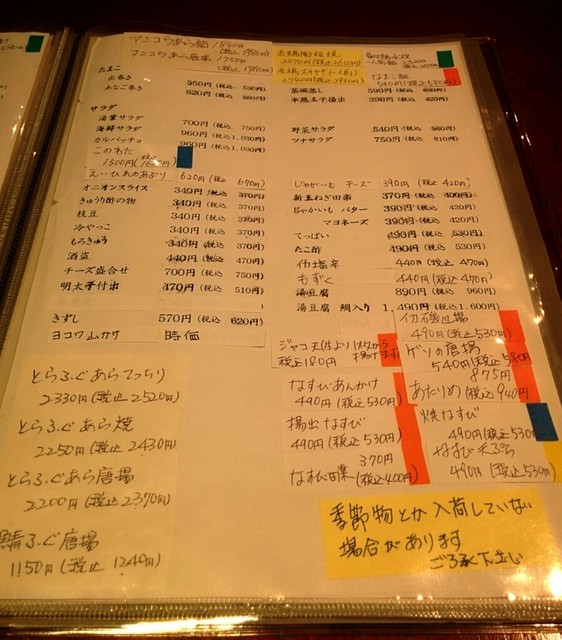 アンコウあら鍋 1840円
(税込 1980円)
アンコウあら唐揚 1750円
(税込 1890円)
たまご
出巻き 550円 (税込 590円)
あなご巻き 820円 (税込 880円)
サラダ
湯葉サラダ 700円 (税込 750円)
海鮮サラダ 960円 (税込 1,030円)
カルパッチョ 960円 (税込 1,030円)
このわた
1500円
えいひれのあぶり 620円 (税込 670円)
オニオンスライス 340円 (税込 370円)
きゅうり酢の物 340円 (税込 370円)
枝豆 340円 (税込 370円)
冷やっこ 340円 (税込 370円)
もろきゅう 340円 (税込 370円)
酒盗 440円 (税込 470円)
チーズ盛合せ 700円 (税込 750円)
明太子付出 470円 (税込 510円)
きずし 570円 (税込 620円)
ヨコワ 時価
とらふぐあらてっちり
2330円 (税込 2520円)
とらふぐあら焼
2250円 (税込 2430円)
とらふぐあら唐揚
2200円 (税込 2370円)
鯖ふぐ唐揚
1150円 (税込 1240円)
茶碗蒸し 550円 (税込 590円)
半熟玉子揚出 390円 (税込 420円)
野菜サラダ 540円 (税込 580円)
ツナサラダ 750円 (税込 810円)
じゃがいも チーズ 390円 (税込 420円)
新玉ねぎ田楽 370円 (税込 400円)
じゃがいも バター 390円 (税込 420円)
マヨネーズ 390円 (税込 420円)
てっぱい 490円 (税込 530円)
たこ酢 490円 (税込 530円)
イカ塩辛 440円 (税込 470円)
もずく 440円 (税込 470円)
湯豆腐 890円 (税込 960円)
湯豆腐 鯛入り 1,490円 (税込 1,600円)
イカ磯辺揚
490円 (税込 530円)
ジャコ天 (生より1枚から揚げます)
税込 180円
ゲソの唐揚
540円 (税込 580円)
875円
あたりめ (税込 940円)
なすびあんかけ
490円 (税込 530円)
揚出なすび
490円 (税込 530円)
370円
なすび田楽 (税込 400円)
焼なすび
490円 (税込 530円)
なすび天ぷら
490円 (税込 530円)
季節物とか入荷していない
場合があります
ご了承下さい